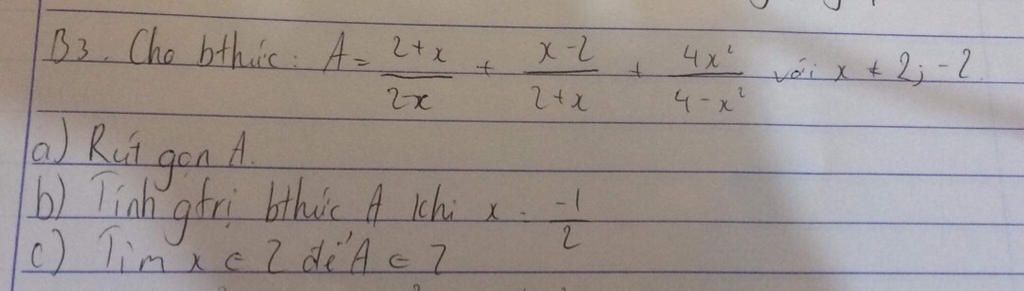 B3. Cho bthức: A = \frac{2+x}{2x} + \frac{x-2}{2+x} + \frac{4x²}{4-x²} với x ≠ 2; -2.
a) Rút gọn A.
b) Tính gtrị bthức A khi x = \frac{-1}{2}
c) Tìm x ∈ Z để A ∈ Z